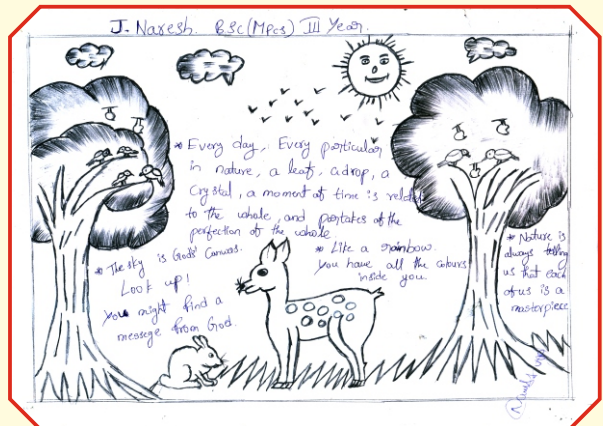 J. Naresh. BSc(MPCs) III Year.
* Every day, Every particular
in nature, a leaf, a drop, a
Crystal, a moment of time is related
to the whole, and partakes of the
perfection of the whole.
* The sky is Gods' Canvas.
Look up!
You might find a
message from God.
* Like a rainbow.
You have all the colours
inside you.
* Nature is
always telling
us that each
of us is a
masterpiece